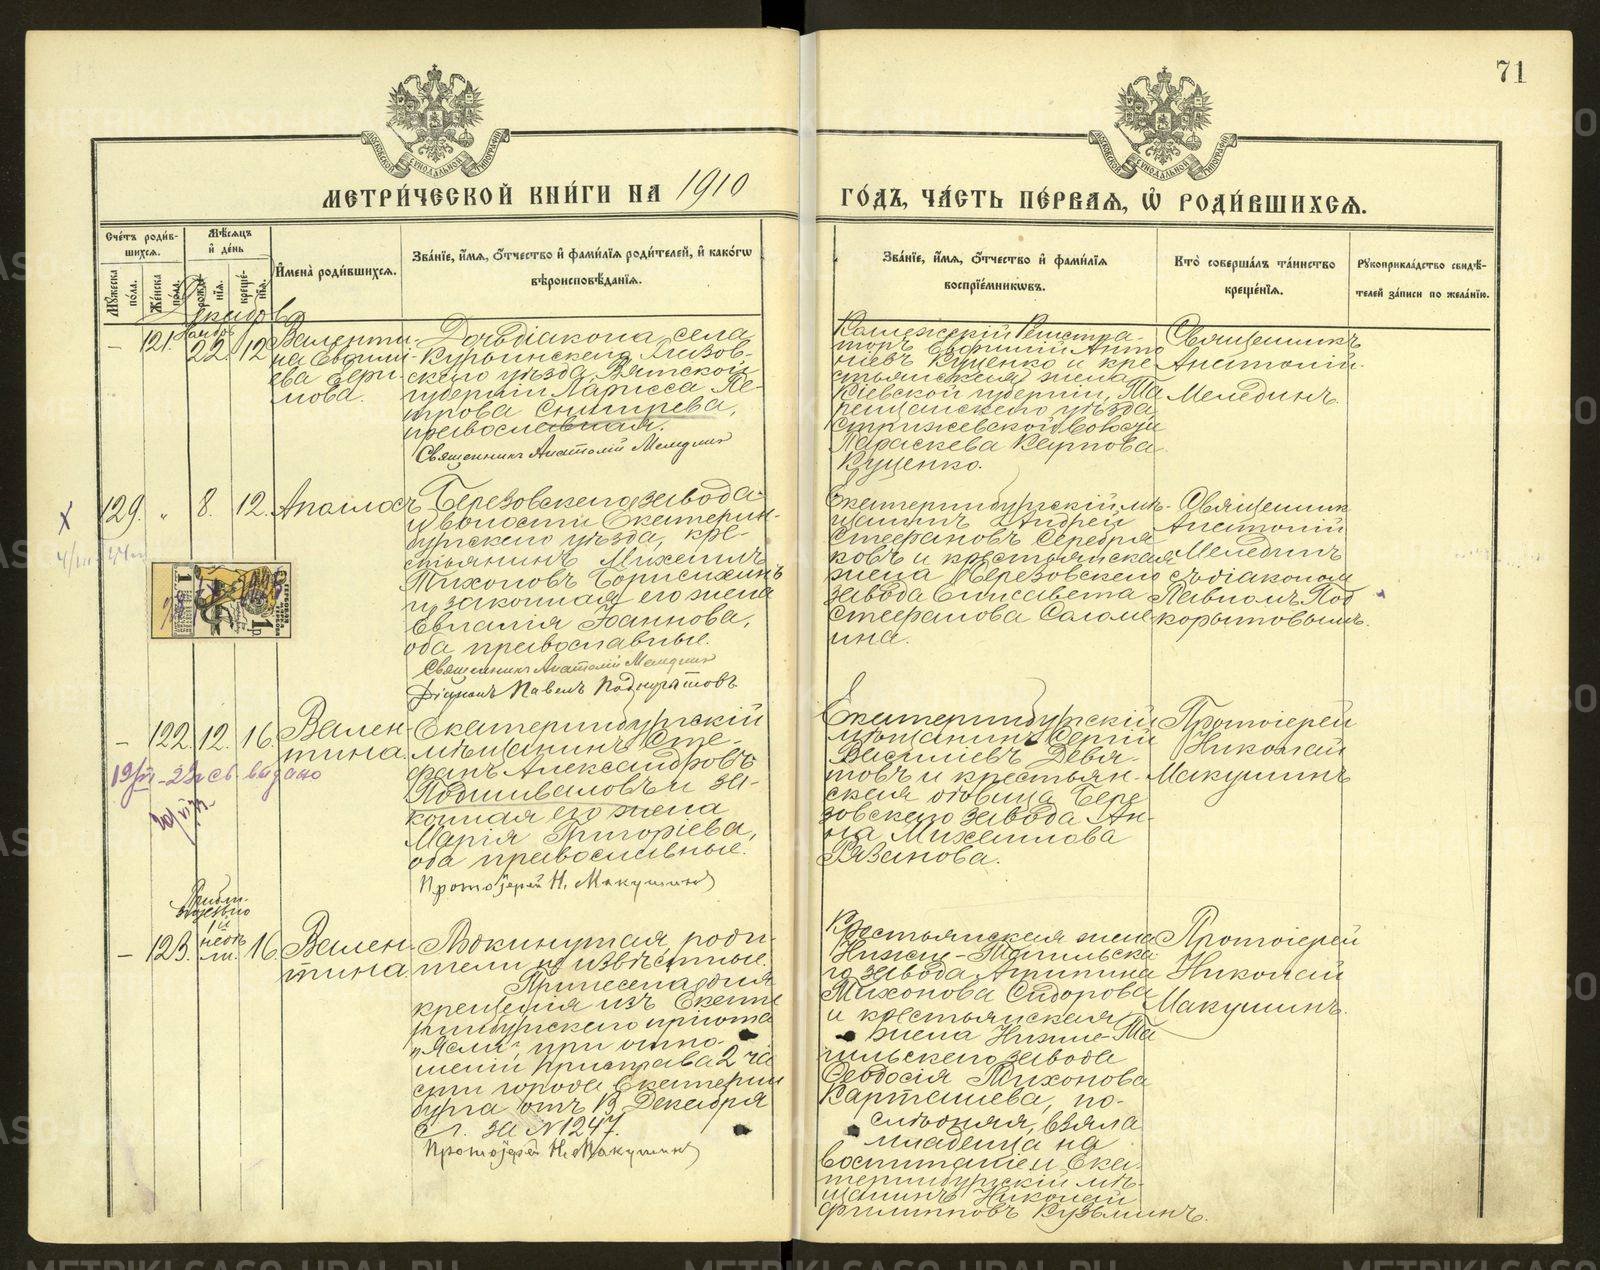 71
МЕТРИ́ЧЕСКОЙ КНИ́ГИ НА 1910
ГО́ДЪ, ЧА́СТЬ ПЕ́РВАЯ, Ѡ҆ РОДИ́ВШИХСЯ.
Сче́тъ роди́в-
шихся.
Мѣ́сяцъ
и҆ де́нь
Мꙋ́жеска
по́ла.
Же́нска
по́ла.
рожде́-
нїя.
креще́-
нїя.
И҆мена̀ роди́вшихся.
Зва́нїе, и҆́мя, Ѻ҆́тчество и҆ фами́лїя роди́телей, и҆ како́гѡ
вѣроисповѣ́данїя.
Зва́нїе, и҆́мя, Ѻ҆́тчество и҆ фами́лїя
воспрїе́мникѡвъ.
Кто̀ соверша́лъ та́инство
креще́нїя.
Рꙋкоприкла́дство свидѣ́-
телей за́писи по жела́нїю.
Декабрь
–
121.
22.
12
Валенти-
на Евфими-
ева
Дочь діакона села
Курьинскаго, Глазов-
скаго уѣзда Вятской
губерніи Ларисса Пе-
трова Снигирева,
православная.
Священникъ Анатолій Меледин
Коллежскій Регистра-
торъ Евфимій Анто-
ніевъ Куценко и кре-
стьянская жена
Кіевской губерніи, Та-
ращанскаго уѣзда
Стрижевской Волости
Параскева Карпова
Куценко.
Священникъ
Анатолій
Мелединъ.
129.
"
8.
12.
Аполлосъ
Березовскаго завода
и волости Екатерин-
бургскаго уѣзда, кре-
стьянинъ Михаилъ
Тихоновъ Борисихинъ
и законная его жена
Евлалія Іоаннова,
оба православные.
Священникъ Анатолій Меледин
Діаконъ Павелъ Подкорытовъ
Екатеринбургскій мѣ-
щанинъ Андрей
Стефановъ Серебря-
ковъ и крестьянская
жена Березовскаго
завода Елисавета
Стефанова Соломе-
ина.
Священник
Анатолій
Меледин
съ діакономъ
Павломъ Под
корытовымъ.
1 р
–
122.
12.
16.
Вален-
тина.
Екатеринбургскій
мѣщанинъ Сте-
фанъ Александровъ
Подшиваловъ и за-
конная его жена
Марія Григоріева,
оба православные.
Протоіерей Н. Макушинъ
выдано
Екатеринбургскій
мѣщанинъ Сергій
Василіевъ Девя-
товъ и крестьян-
ская вдовица Бере-
зовскаго завода Ан-
на Михаилова
Рязанова.
Протоіерей
Николай
Макушинъ
Прибли-
зительно
1й
недѣ-
ли.
–
123.
16.
Вален-
тина
Подкинутая, роди-
тели неизвѣстные.
Принесена для
крещенія изъ Екате-
ринбургскаго пріюта
„Ясли", при отно-
шеніи Пристава 2 ча-
сти города Екатерин
бурга отъ 13 Декабря
с. г. за № 1247.
Протоіерей Н. Макушинъ
Крестьянская жена
Нижне-Тагильска-
го завода Агрипина
Тихонова Сидорова
и крестьянская
жена Нижне-Та
гильскаго завода
Феодосія Тихонова
Карташева, по-
слѣдняя, взяла
младенца на
воспитаніе и Ека-
теринбургскій мѣ-
щанинъ Николай
Филипповъ Кузьминъ.
Протоіерей
Николай
Макушинъ.